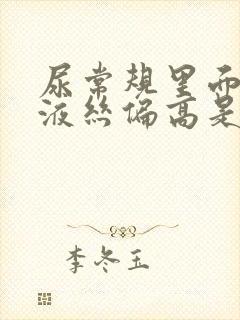 尿常规里而
液丝偏高是
李冬玉